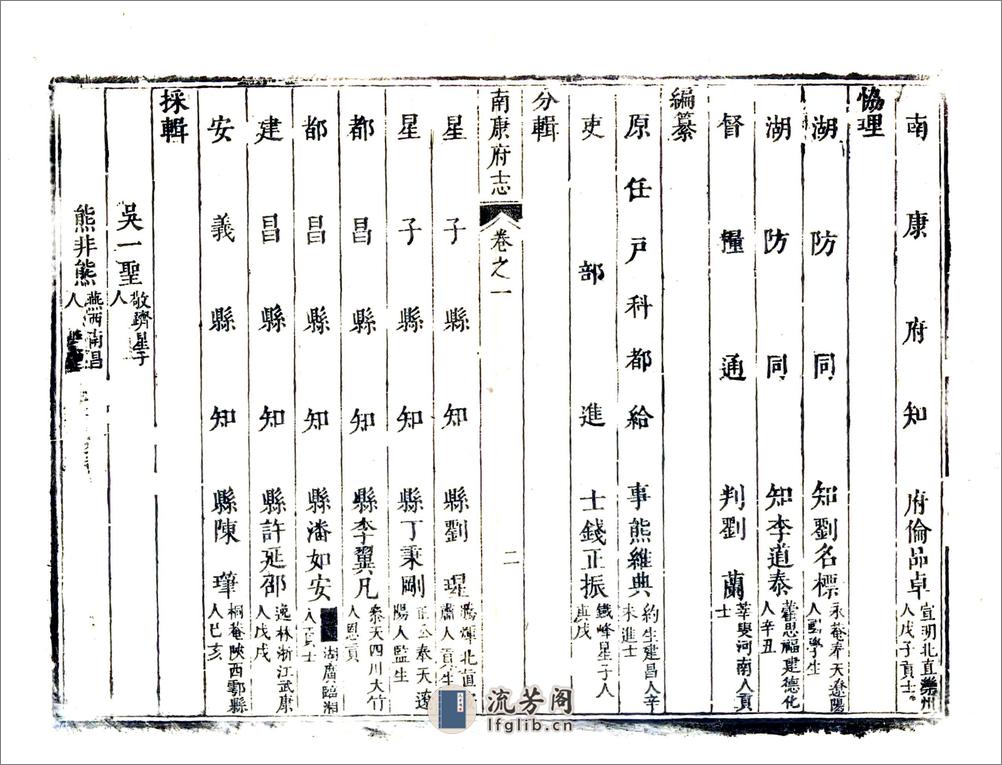 南康府知府倫品卓宣明北直灤州人戊子貢士
協理
湖防同知劉名標永菴奉天遼陽人學生
湖防同知李道泰思福建德化人辛丑
督糧通判劉蘭莘叟河南人貢士
編纂
原任戶科都給事熊維典約生建昌人辛未進士
吏部進士錢正振鐵峰星子人庚戌
分輯
南康府志 卷之一 二
星子縣知縣劉瑆
星子縣知縣丁秉剛奉天遼陽人監生
都昌縣知縣李翼凡四川大竹人恩貢
都昌縣知縣潘如安湖廣臨湘人
建昌縣知縣許延邵逸林浙江武康人戊戌
安義縣知縣陳肇桐菴陝西鄠縣人己亥
採輯
吳一聖敬躋星子人
熊非熊燕西南昌人
流芳阁
lfglib.cn